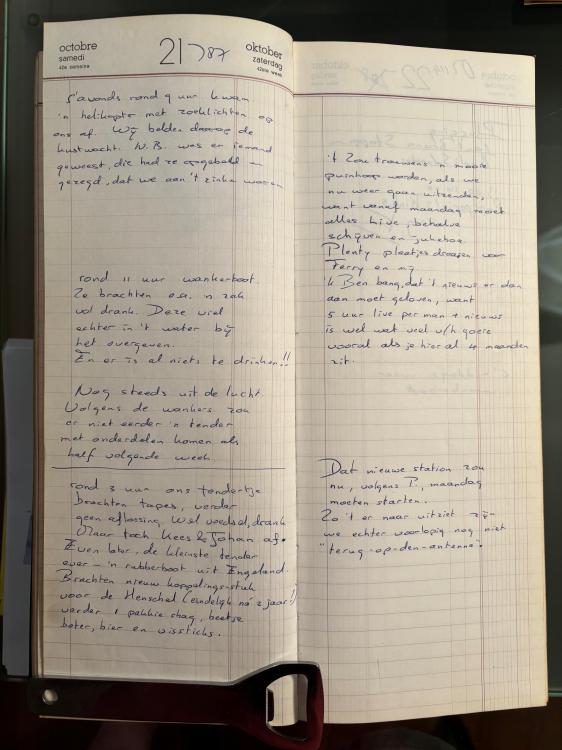 octobre
samedi
42e semaine
21 → '87
oktober
zaterdag
42ste week
's'avonds rond 9 uur kwam
'n helikopter met zoeklichten op
ons af. Wij belden daarop de
kustwacht. N.B. was er iemand
geweest, die had ze opgebeld —
gezegd, dat we aan 't zinken waren
rond 11 uur wankerboot.
Ze brachten o.a. 'n zak
vol drank. Deze viel
echter in 't water bij
het overgeven.
En er is al niets te drinken!!
Nog steeds uit de lucht.
Volgens de wankers zou
er niet eerder 'n tender
met onderdelen komen als
half volgende week.
rond 3 uur ons tendertje
brachten tapes, verder
geen aflossing. Wel voedsel, drank
Maar toch Kees & Johan af.
Even later, de kleinste tender
ever – 'n rubberboot uit Engeland.
Brachten nieuw koppelings-stuk
voor de Henschel (eindelijk ná 2 jaar!)
verder 1 pakkie shag, beetje
boter, bier en vissticks.
oktober
't Zou trouwens 'n mooie
puinhoop worden, als we
nu weer gaan uitzenden,
want vanaf maandag moet
alles live, behalve
schijven en jukebox
Plenty plaatjes draaien voor
Ferry en mij
'k Ben bang, dat 't nieuws er dan
aan moet geloven, want
5 uur live per man + nieuws
is wel wat veel v/h goeie
vooral als je hier al 4 maanden
zit.
Dat nieuwe station zou
nu, volgens P., maandag
moeten starten.
Zo 't er naar uitziet zijn
we echter voorlopig nog niet
"terug-op-den-antenne".